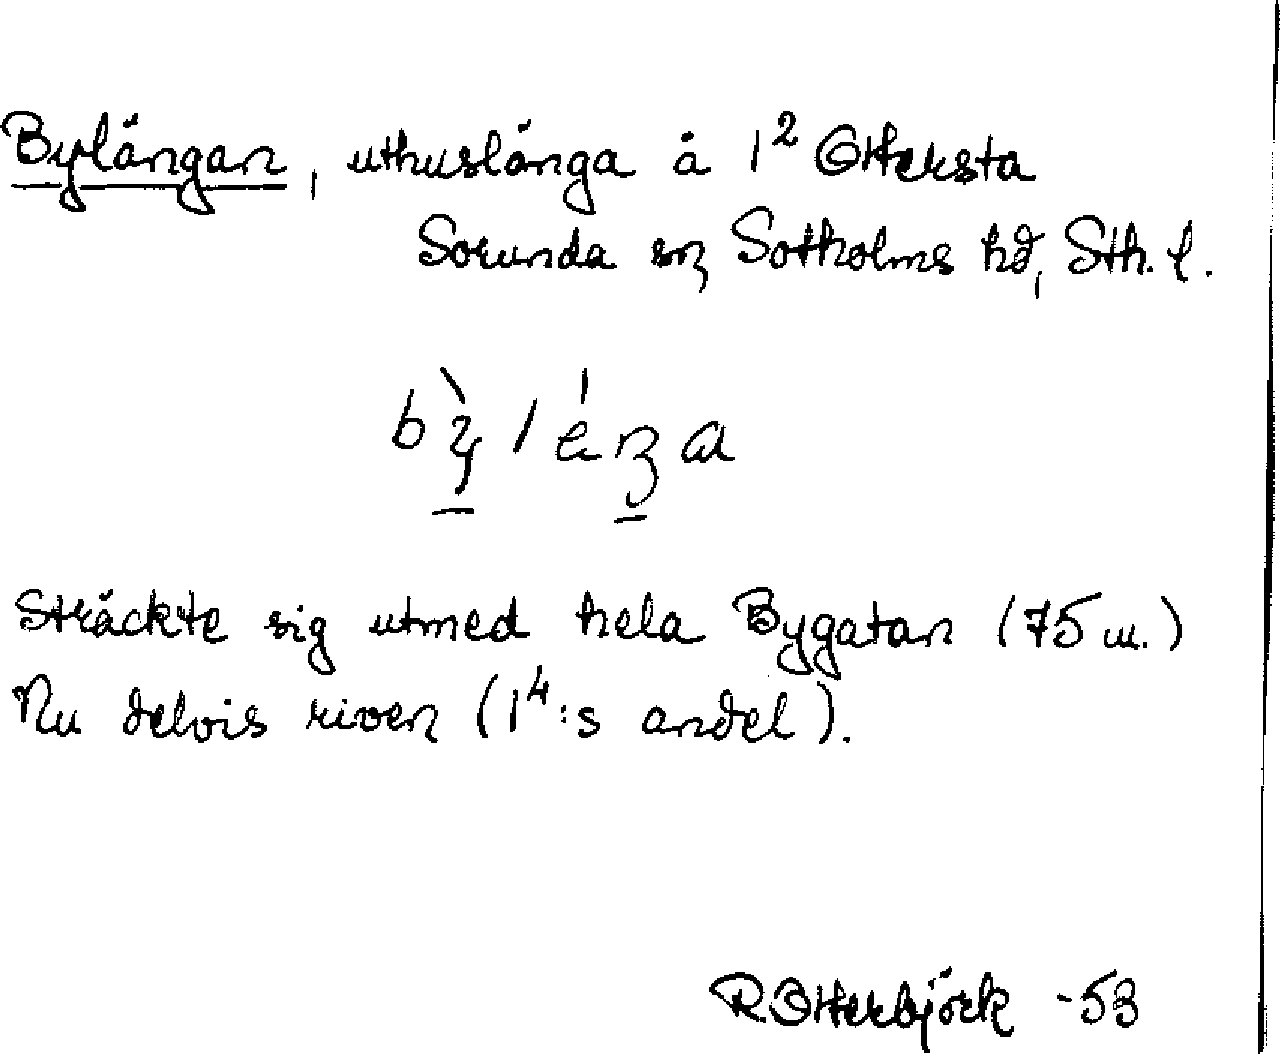 Bylängan, uthuslänga å 1² Otteksta
Sorunda sn, Sotholms hd, Sth. l.
Sträckte sig utmed hela Bygatan (75 m.)
Nu delvis riven (1⁴:s andel).
R. Otterbjörk -53